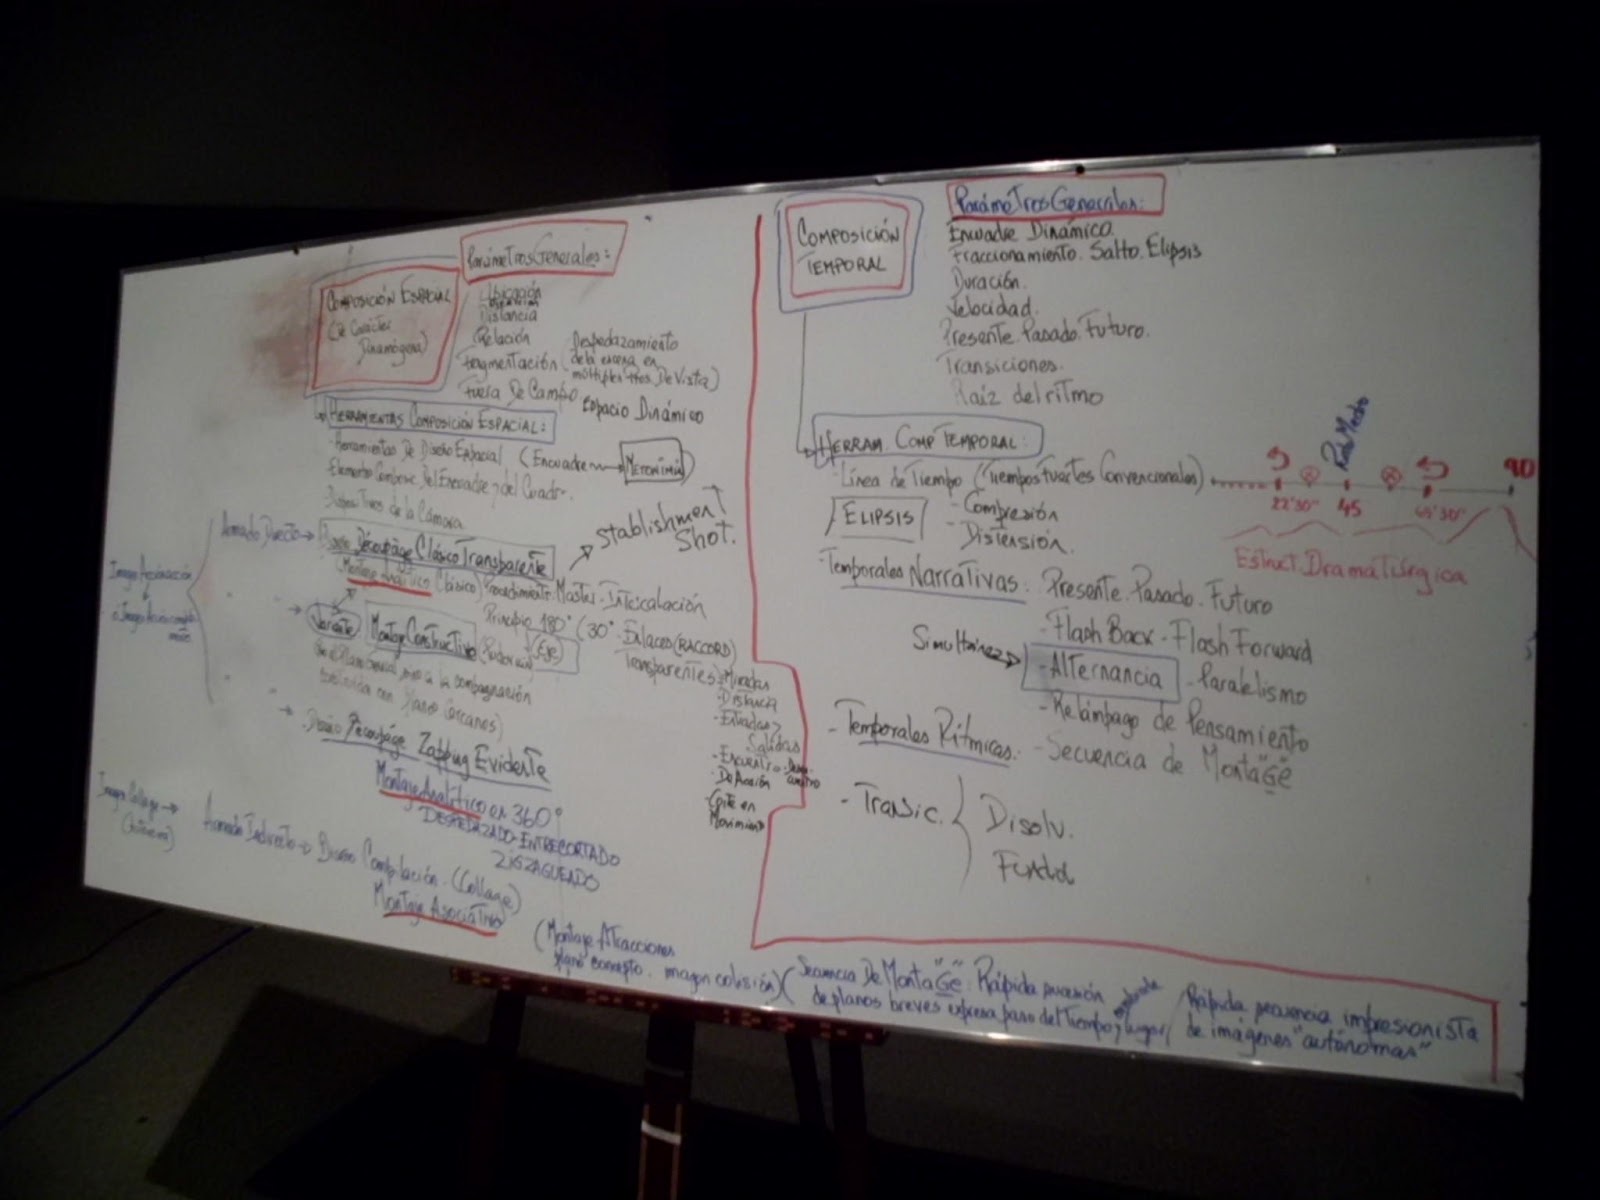 Parámetros Generales:
COMPOSICIÓN ESPACIAL
(De Carácter
Dinamógena)
Ubicación
Distancia
Relación
Fragmentación (Despedazamiento
de la escena en
múltiples Ptos. De Vista)
Fuera De Campo
Espacio Dinámico
HERRAMIENTAS COMPOSICIÓN ESPACIAL:
-Herramientas De Diseño Espacial (Encuadre → METONIMIA)
Del Encuadre y del Cuadro.
de la Cámara
Armado Directo → Découpage Clásico Transparente
Stablishment
Shot.
Montaje Analítico Clásico) Procedimiento Master-Intercalación
Principio 180° (30° - Enlaces (RACCORD)
(Eje)
Transparentes): Miradas
-Distancia
-Entradas y
Salidas
-Encuentro-Desen-
cuentro
-De Acción
-Corte en
Movimiento
Variante
Montaje Constructivo
Planos Cercanos)
→ Découpage Zapping Evidente
Montaje Analítico en 360°
DESPEDAZADO-ENTRECORTADO
ZIGZAGUEADO
Imagen Collage →
Armado Indirecto → Compilación. (Collage)
Montaje Asociativo
(Montaje Atracciones
plano concepto. imagen colisión)
COMPOSICIÓN
TEMPORAL
Parámetros Generales:
Encuadre Dinámico.
Fraccionamiento. Salto. Elipsis
Duración.
Velocidad.
Presente. Pasado. Futuro.
Transiciones.
Raíz del ritmo
HERRAM. COMP TEMPORAL:
-Línea de Tiempo (Tiempos Fuertes Convencionales)
22'30" 45 90
Estruct. Dramatúrgica
ELIPSIS
- Compresión
- Distensión.
-Temporales Narrativas: Presente. Pasado. Futuro
-Flash Back - Flash Forward
Simultáneo →
-Alternancia - Paralelismo
-Relámpago de Pensamiento
-Temporales Rítmicas: -Secuencia de Mon"taGe"
- Transic. { Disolv.
Fundid
(Secuencia De Monta"Ge": Rápida sucesión
de planos breves expresa paso del Tiempo y lugar/
Rápida secuencia impresionista
de imágenes "autónomas"